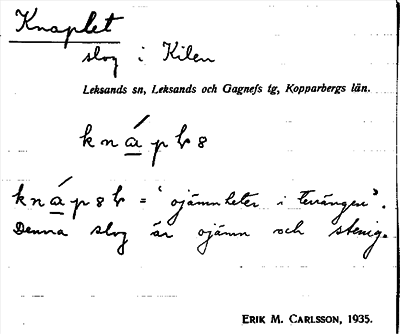 Knaplet
slog i Kilen
Leksands sn, Leksands och Gagnefs tg, Kopparbergs län.
k n á p
k n á p = "ojämnheter i terrängen".
Denna slog är ojämn och stenig.
ERIK M. CARLSSON, 1935.